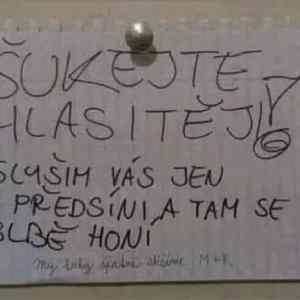 ŠUKEJTE
HLASITĚJI!
SLYŠIM VÁS JEN
PŘEDSÍNI A TAM SE
BLBĚ HONÍ
My taky špatně slišíme M+K